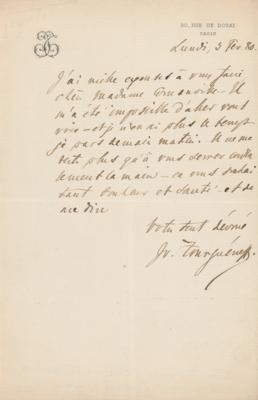 50, RUE DE DOUAI
PARIS
Lundi, 3 Fév. 80.
J'ai mille excuses à vous faire
chère Madame
m'a été impossible d'aller vous
voir – et je n'en ai plus le temps –
je pars demain matin. Il ne me
reste plus qu'à vous serrer
la main – en vous souhai-
tant bonheur et santé – et de
me dire
Votre tout dévoué
Iv. Tourguéneff